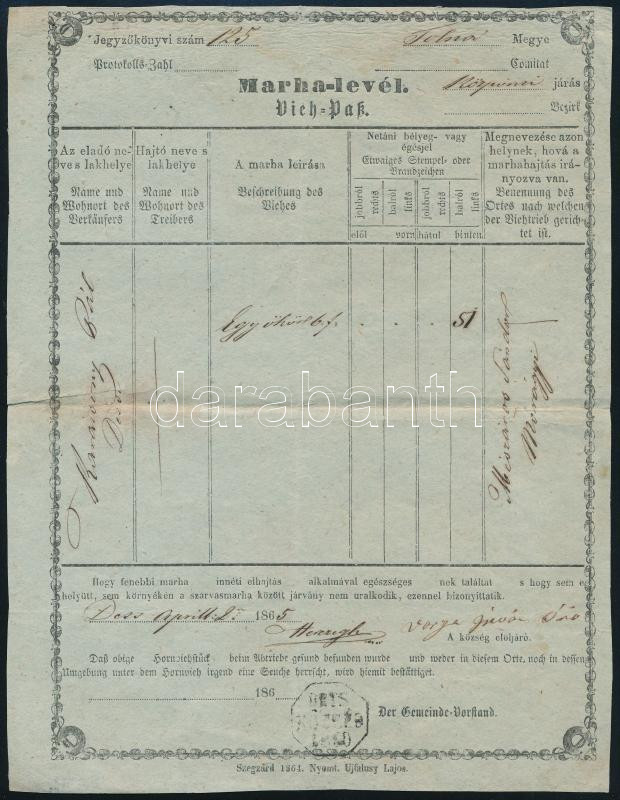 Jegyzőkönyvi szám 125 Tolna Megye
Protokolls-Zahl Comitat
Marha-levél. Központi járás
Vieh-Paß. Bezirk
Az eladó ne-
ve s lakhelye
Name und
Wohnort des
Verkäufers
Hajtó neve s
lakhelye
Name und
Wohnort des
Treibers
A marha leirása
Beschreibung des
Viehes
Netáni bélyeg- vagy
égésjel
Etwaiges Stempel- oder
Brandzeichen
jobbról
rechts
balról
links
jobbról
rechts
balról
links
elöl vorn hátul hinten.
Megnevezése azon
helynek, hová a
marhahajtás irá-
nyozva van.
Benennung des
Ortes nach welchen
der Viehtrieb gerich-
tet ist.
Pál
51
Mészáros Sándor
darabanth
www.darabanth.com
Hogy fenebbi marha innéti elhajtás alkalmával egészséges nek találtat s hogy sem e
helyütt, sem környékén a szarvasmarha között járvány nem uralkodik, ezennel bizonyittatik.
April 2 1865
Varga
A község elöljáró.
Daß obige Hornviehstück beim Abtriebe gesund befunden wurde und weder in diesem Orte, noch in dessen
Umgebung unter dem Hornvieh irgend eine Seuche herrscht, wird hiemit bestättiget.
186
Der Gemeinde-Vorstand.
Szegzárd 1864. Nyomt. Ujfalusy Lajos.